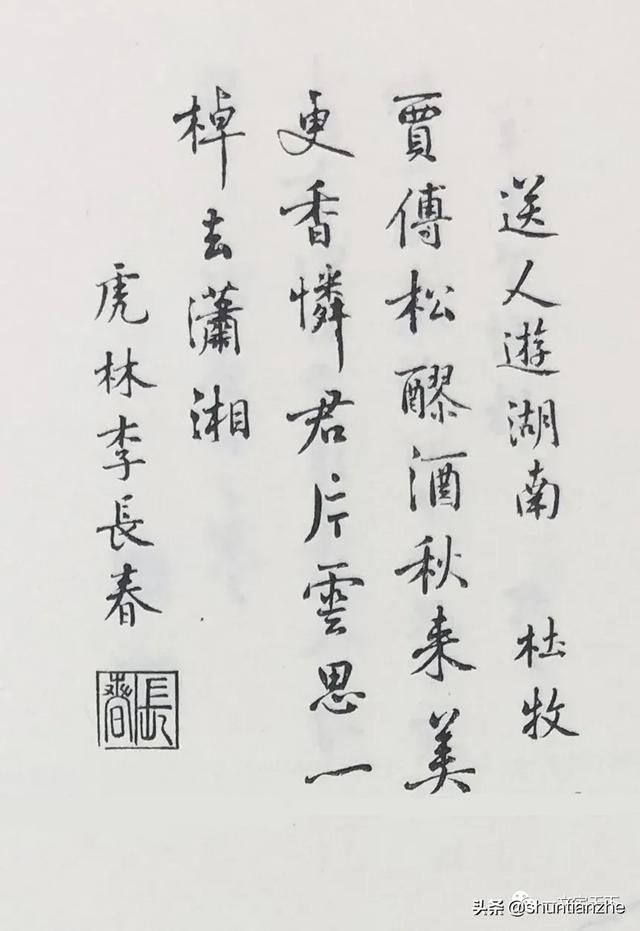 送人遊湖南 杜牧
賈傅松醪酒秋来美
更香憐君片雲思一
棹去瀟湘
虎林李長春
長春
头条 @shuntianzhe